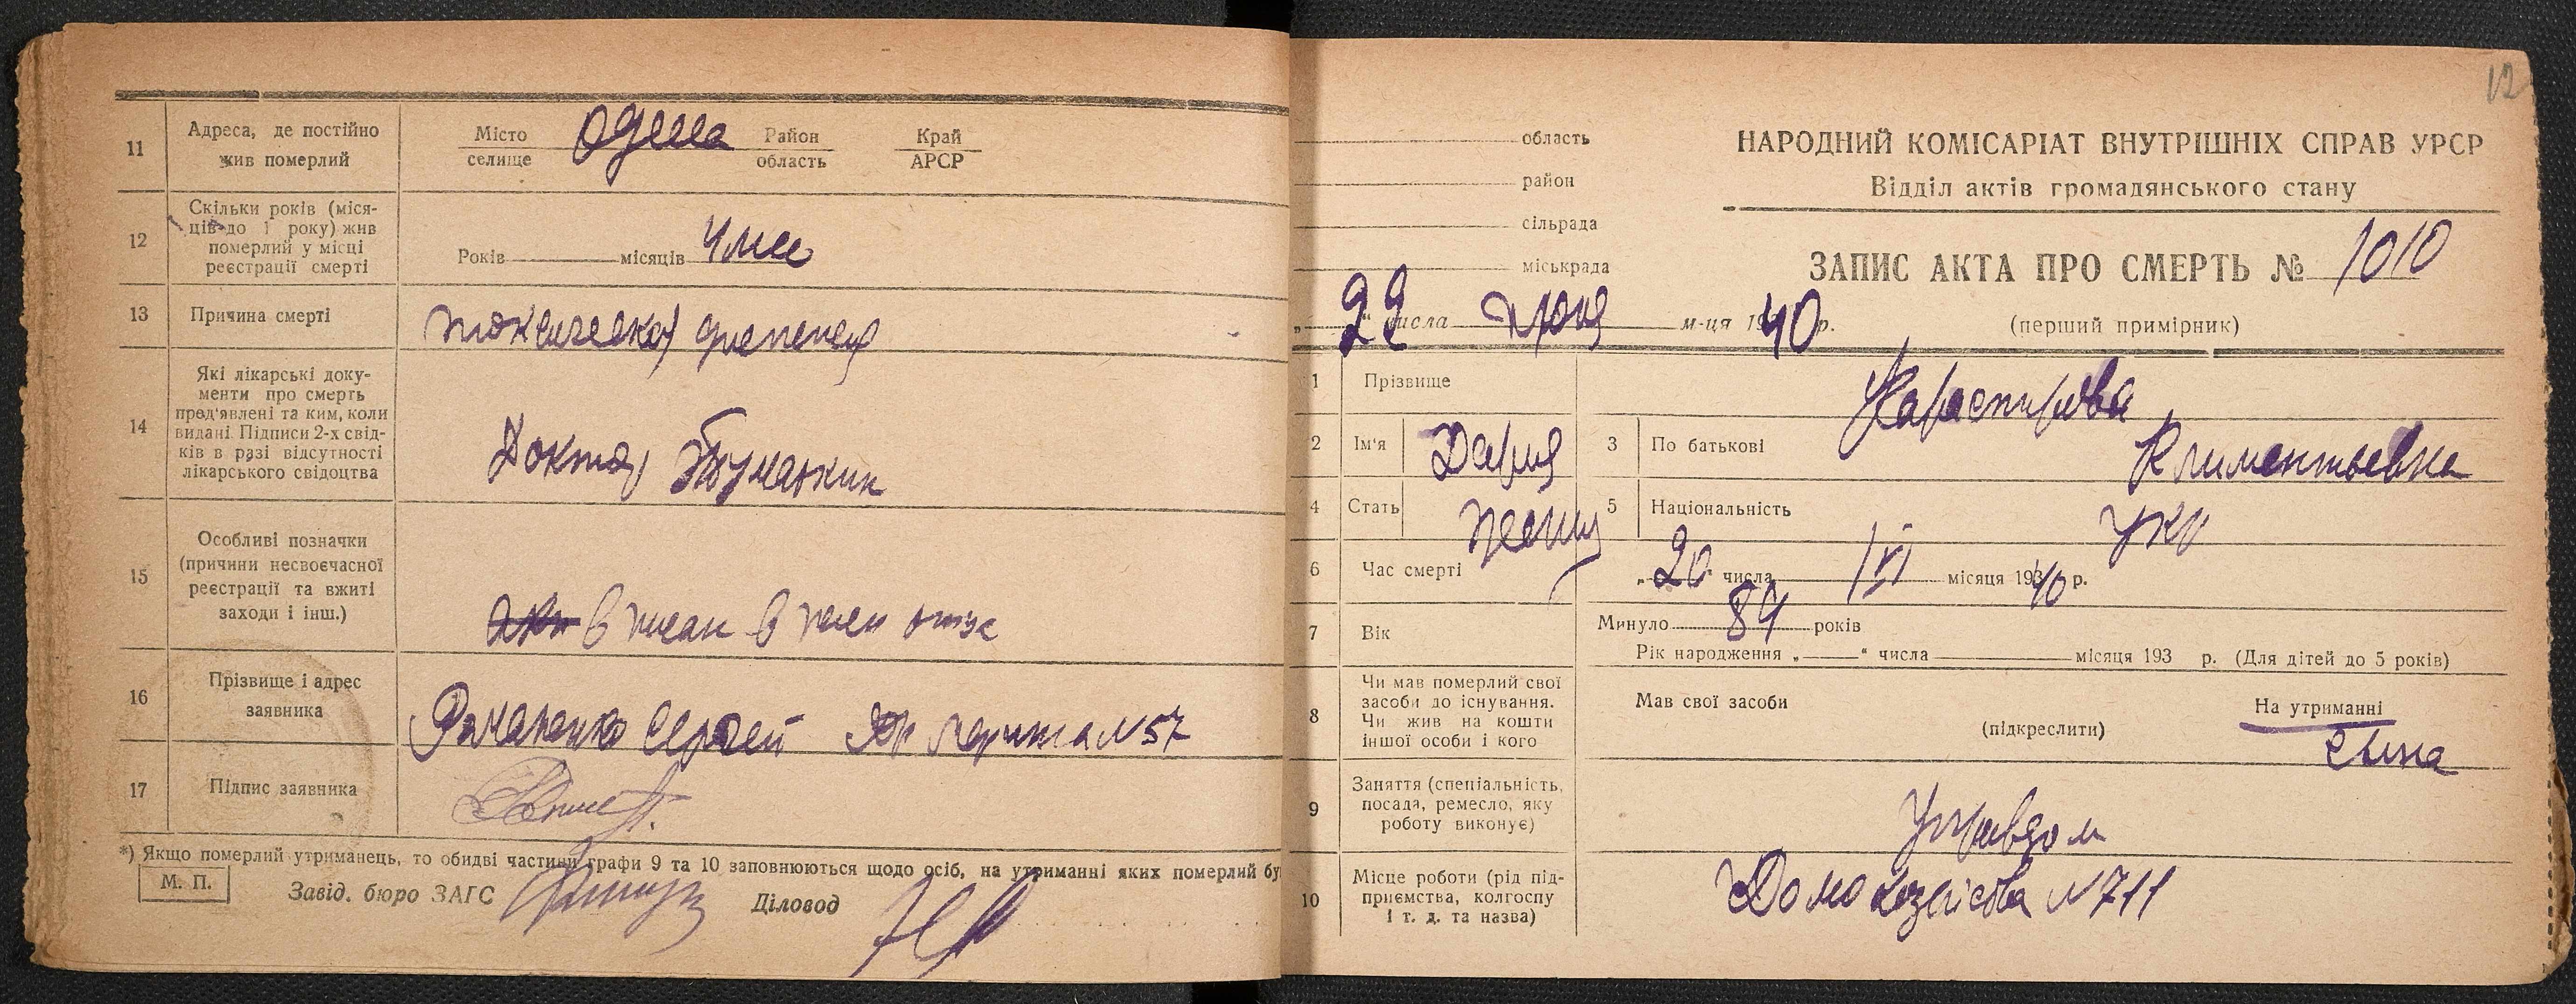 11
Адреса, де постійно
жив померлий
Місто
селище
Одесса
Район
область
Край
АРСР
12
Скільки років (міся-
ців до 1 року) жив
померлий у місці
реєстрації смерті
Років місяців 4 мес
13
Причина смерті
токсическая
14
Які лікарські доку-
менти про смерть
пред'явлені та ким, коли
видані. Підписи 2-х свід-
ків в разі відсутності
лікарського свідоцтва
Доктор
15
Особливі позначки
(причини несвоєчасної
реєстрації та вжиті
заходи і інш.)
в в
16
Прізвище і адрес
заявника
Романенко Сергей №57
17
Підпис заявника
*) Якщо померлий утриманець, то обидві частини графи 9 та 10 заповнюються щодо осіб, на утриманні яких померлий бу
М. П.
Завід. бюро ЗАГС
Діловод
12
область
район
сільрада
міськрада
„22“ числа июня м-ця 1940 р.
НАРОДНИЙ КОМІСАРІАТ ВНУТРІШНІХ СПРАВ УРСР
Відділ актів громадянського стану
ЗАПИС АКТА ПРО СМЕРТЬ № 1010
(перший примірник)
1
Прізвище
2
Ім'я
Дария
3
По батькові
Климентьевна
4
Стать
женщ
5
Національність
укр
6
Час смерті
„20“ числа VI місяця 19340 р.
7
Вік
Минуло 84 років
Рік народження „ “ числа місяця 193 р. (Для дітей до 5 років)
8
Чи мав померлий свої
засоби до існування.
Чи жив на кошти
іншої особи і кого
Мав свої засоби
(підкреслити)
На утриманні
сына
9
Заняття (спеціальність,
посада, ремесло, яку
роботу виконує)
Управдом
10
Місце роботи (рід під-
приємства, колгоспу
і т. д. та назва)
Домохозяйства №711